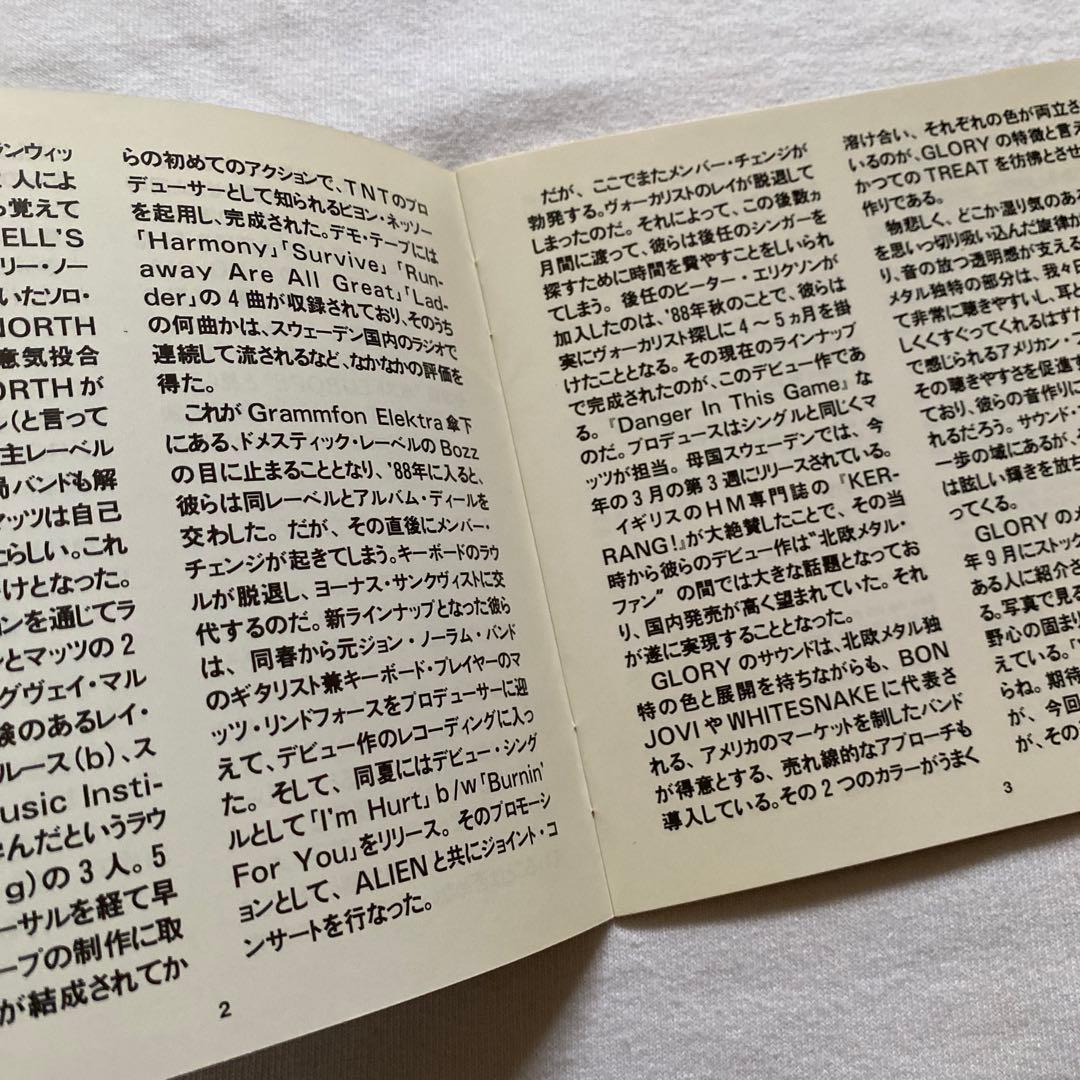 ランウィッ
人によ
覚えて
ELL'S
リー・ノー
いたソロ・
NORTH
意気投合
ORTHが
(と言って
主レーベル
バンドも解
マッツは自己
たらしい。これ
けとなった。
ンを通じてラ
ンとマッツの2
グヴェイ・マル
験のあるレイ・
ルース(b)、ス
usic Insti-
んだというラウ
g)の3人。5
ーサルを経て早
ープの制作に取
が結成されてか
らの初めてのアクションで、TNTのプロ
デューサーとして知られるビヨン・ネッソー
を起用し、完成された。デモ・テープには
「Harmony」「Survive」「Run-
away Are All Great」「Lad-
der」の4曲が収録されており、そのうち
の何曲かは、スウェーデン国内のラジオで
連続して流されるなど、なかなかの評価を
得た。
これがGrammfon Elektra傘下
にある、ドメスティック・レーベルのBozz
の目に止まることとなり、'88年に入ると、
彼らは同レーベルとアルバム・ディールを
交わした。だが、その直後にメンバー・
チェンジが起きてしまう。キーボードのラウ
ルが脱退し、ヨーナス・サンクヴィストに交
代するのだ。新ラインナップとなった彼ら
は、同春から元ジョン・ノーラム・バンド
のギタリスト兼キーボード・プレイヤーのマ
ッツ・リンドフォースをプロデューサーに迎
えて、デビュー作のレコーディングに入っ
た。そして、同夏にはデビュー・シング
ルとして「I'm Hurt」b/w「Burnin'
For You」をリリース。そのプロモーシ
ョンとして、ALIENと共にジョイント・コ
ンサートを行なった。
2
だが、ここでまたメンバー・チェンジが
勃発する。ヴォーカリストのレイが脱退して
しまったのだ。それによって、この後数ヵ
月間に渡って、彼らは後任のシンガーを
探すために時間を費やすことをしいられ
てしまう。後任のピーター・エリクソンが
加入したのは、'88年秋のことで、彼らは
実にヴォーカリスト探しに4〜5ヵ月を掛
けたこととなる。その現在のラインナップ
で完成されたのが、このデビュー作であ
る。『Danger In This Game』な
のだ。プロデュースはシングルと同じくマ
ッツが担当。母国スウェーデンでは、今
年の3月の第3週にリリースされている。
イギリスのHM専門誌の『KER-
RANG!』が大絶賛したことで、その当
時から彼らのデビュー作は"北欧メタル・
ファン"の間では大きな話題となってお
り、国内発売が高く望まれていた。それ
が遂に実現することとなった。
GLORYのサウンドは、北欧メタル独
特の色と展開を持ちながらも、BON
JOVIやWHITESNAKEに代表さ
れる、アメリカのマーケットを制したバンド
が得意とする、売れ線的なアプローチも
導入している。その2つのカラーがうまく
溶け合い、それぞれの色が両立さ
いるのが、GLORYの特徴と言え
かつてのTREATを彷彿とさせ
作りである。
物悲しく、どこか湿り気のあ
を思いっ切り吸い込んだ旋律が
り、音の放つ透明感が支える
メタル独特の部分は、我々日
て非常に聴きやすいし、耳と
しくくすぐってくれるはずだ
で感じられるアメリカン・
その聴きやすさを促進す
ており、彼らの音作りに
れるだろう。サウンド・
一歩の域にあるが、
は眩しい輝きを放ち
ってくる。
GLORYのメ
年9月にストック
ある人に紹介さ
る。写真で見る
野心の固まり
えている。「
らね。期待
が、今回
が、その
3